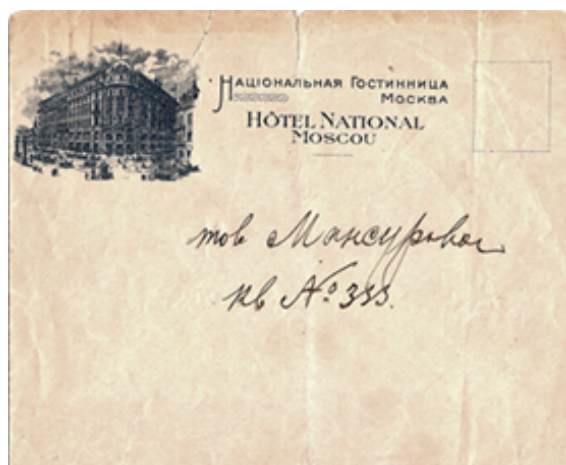 Націоначьная Гостинница
Москва
HÔTEL NATIONAL
MOSCOU
тов Мансуровой
кв № 333.